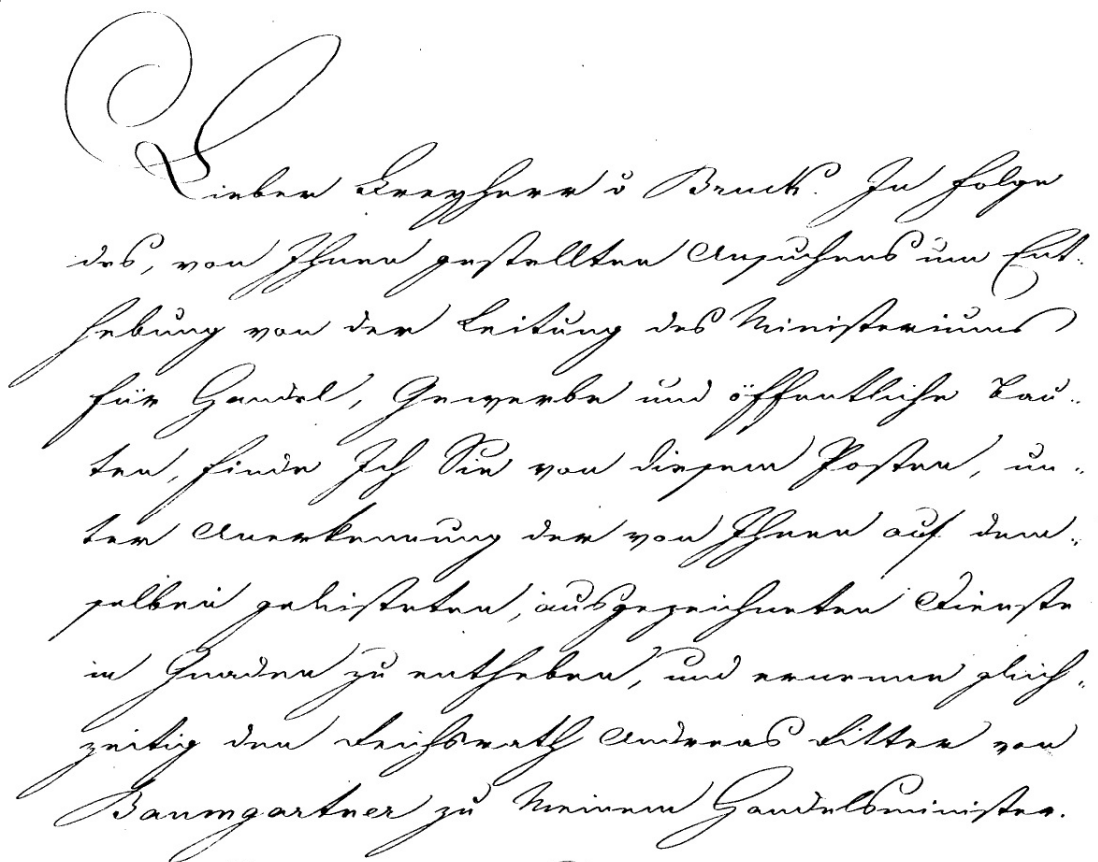 Lieber Freyherr v Bruck. In Folge
des, von Ihnen gestellten Ansuchens um Ent-
hebung von der Leitung des Ministeriums
für Handel, Gewerbe und öffentliche Bau-
ten, finde Ich Sie von diesem Posten, un-
ter Anerkennung der von Ihnen auf dem-
selben geleisteten, ausgezeichneten Dienste
in Gnaden zu entheben, und ernenne gleich-
zeitig den Reichsrath Andreas Ritter von
Baumgartner zu Meinem Handelsminister.